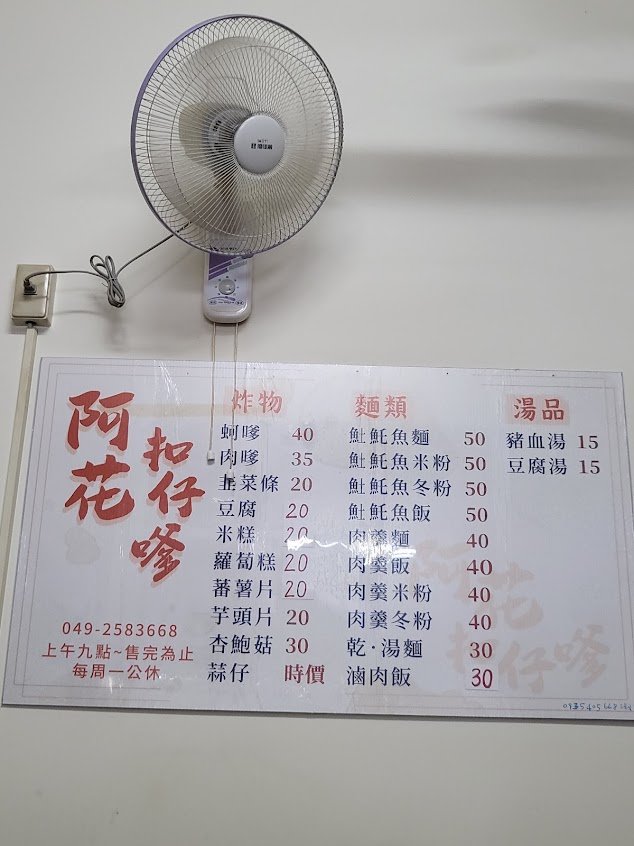 阿花
扣仔嗲
049-2583668
上午九點~售完為止
每周一公休
炸物
蚵嗲 40
肉嗲 35
韭菜條 20
豆腐 20
米糕 20
蘿蔔糕 20
蕃薯片 20
芋頭片 20
杏鮑菇 30
蒜仔 時價
麵類
𩵚魠魚麵 50
𩵚魠魚米粉 50
𩵚魠魚冬粉 50
𩵚魠魚飯 50
肉羹麵 40
肉羹飯 40
肉羹米粉 40
肉羹冬粉 40
乾·湯麵 30
滷肉飯 30
湯品
豬血湯 15
豆腐湯 15